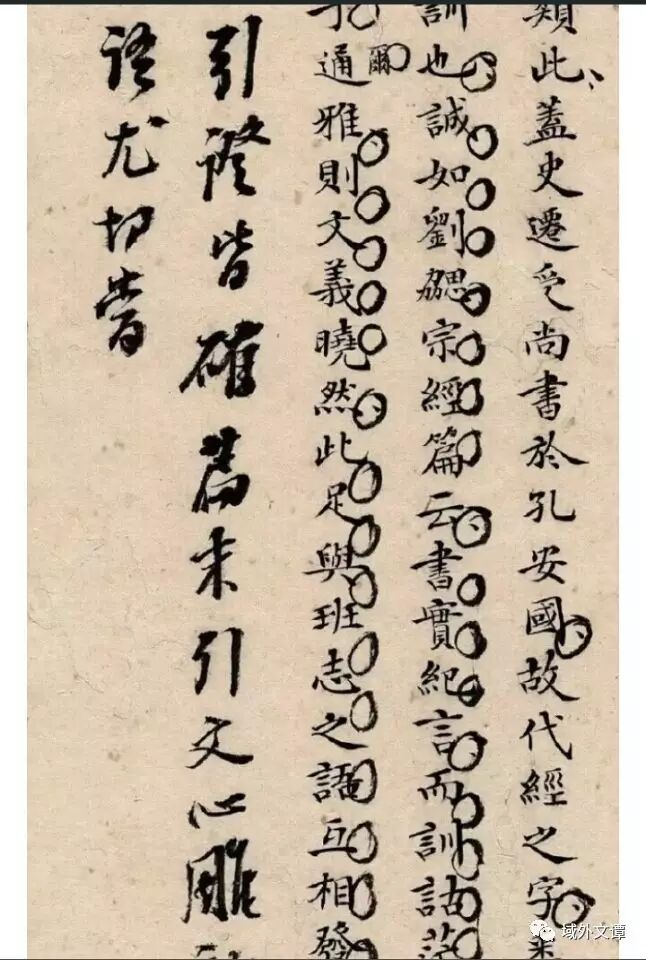 類此蓋史遷受尚書於孔安國故代經之字
訓也誠如劉勰宗經篇云書實紀言而訓詁茫
通爾雅則文義曉然此足與班志之語互相發
引證皆確篇末引文心雕
語尤切當
域外文谭